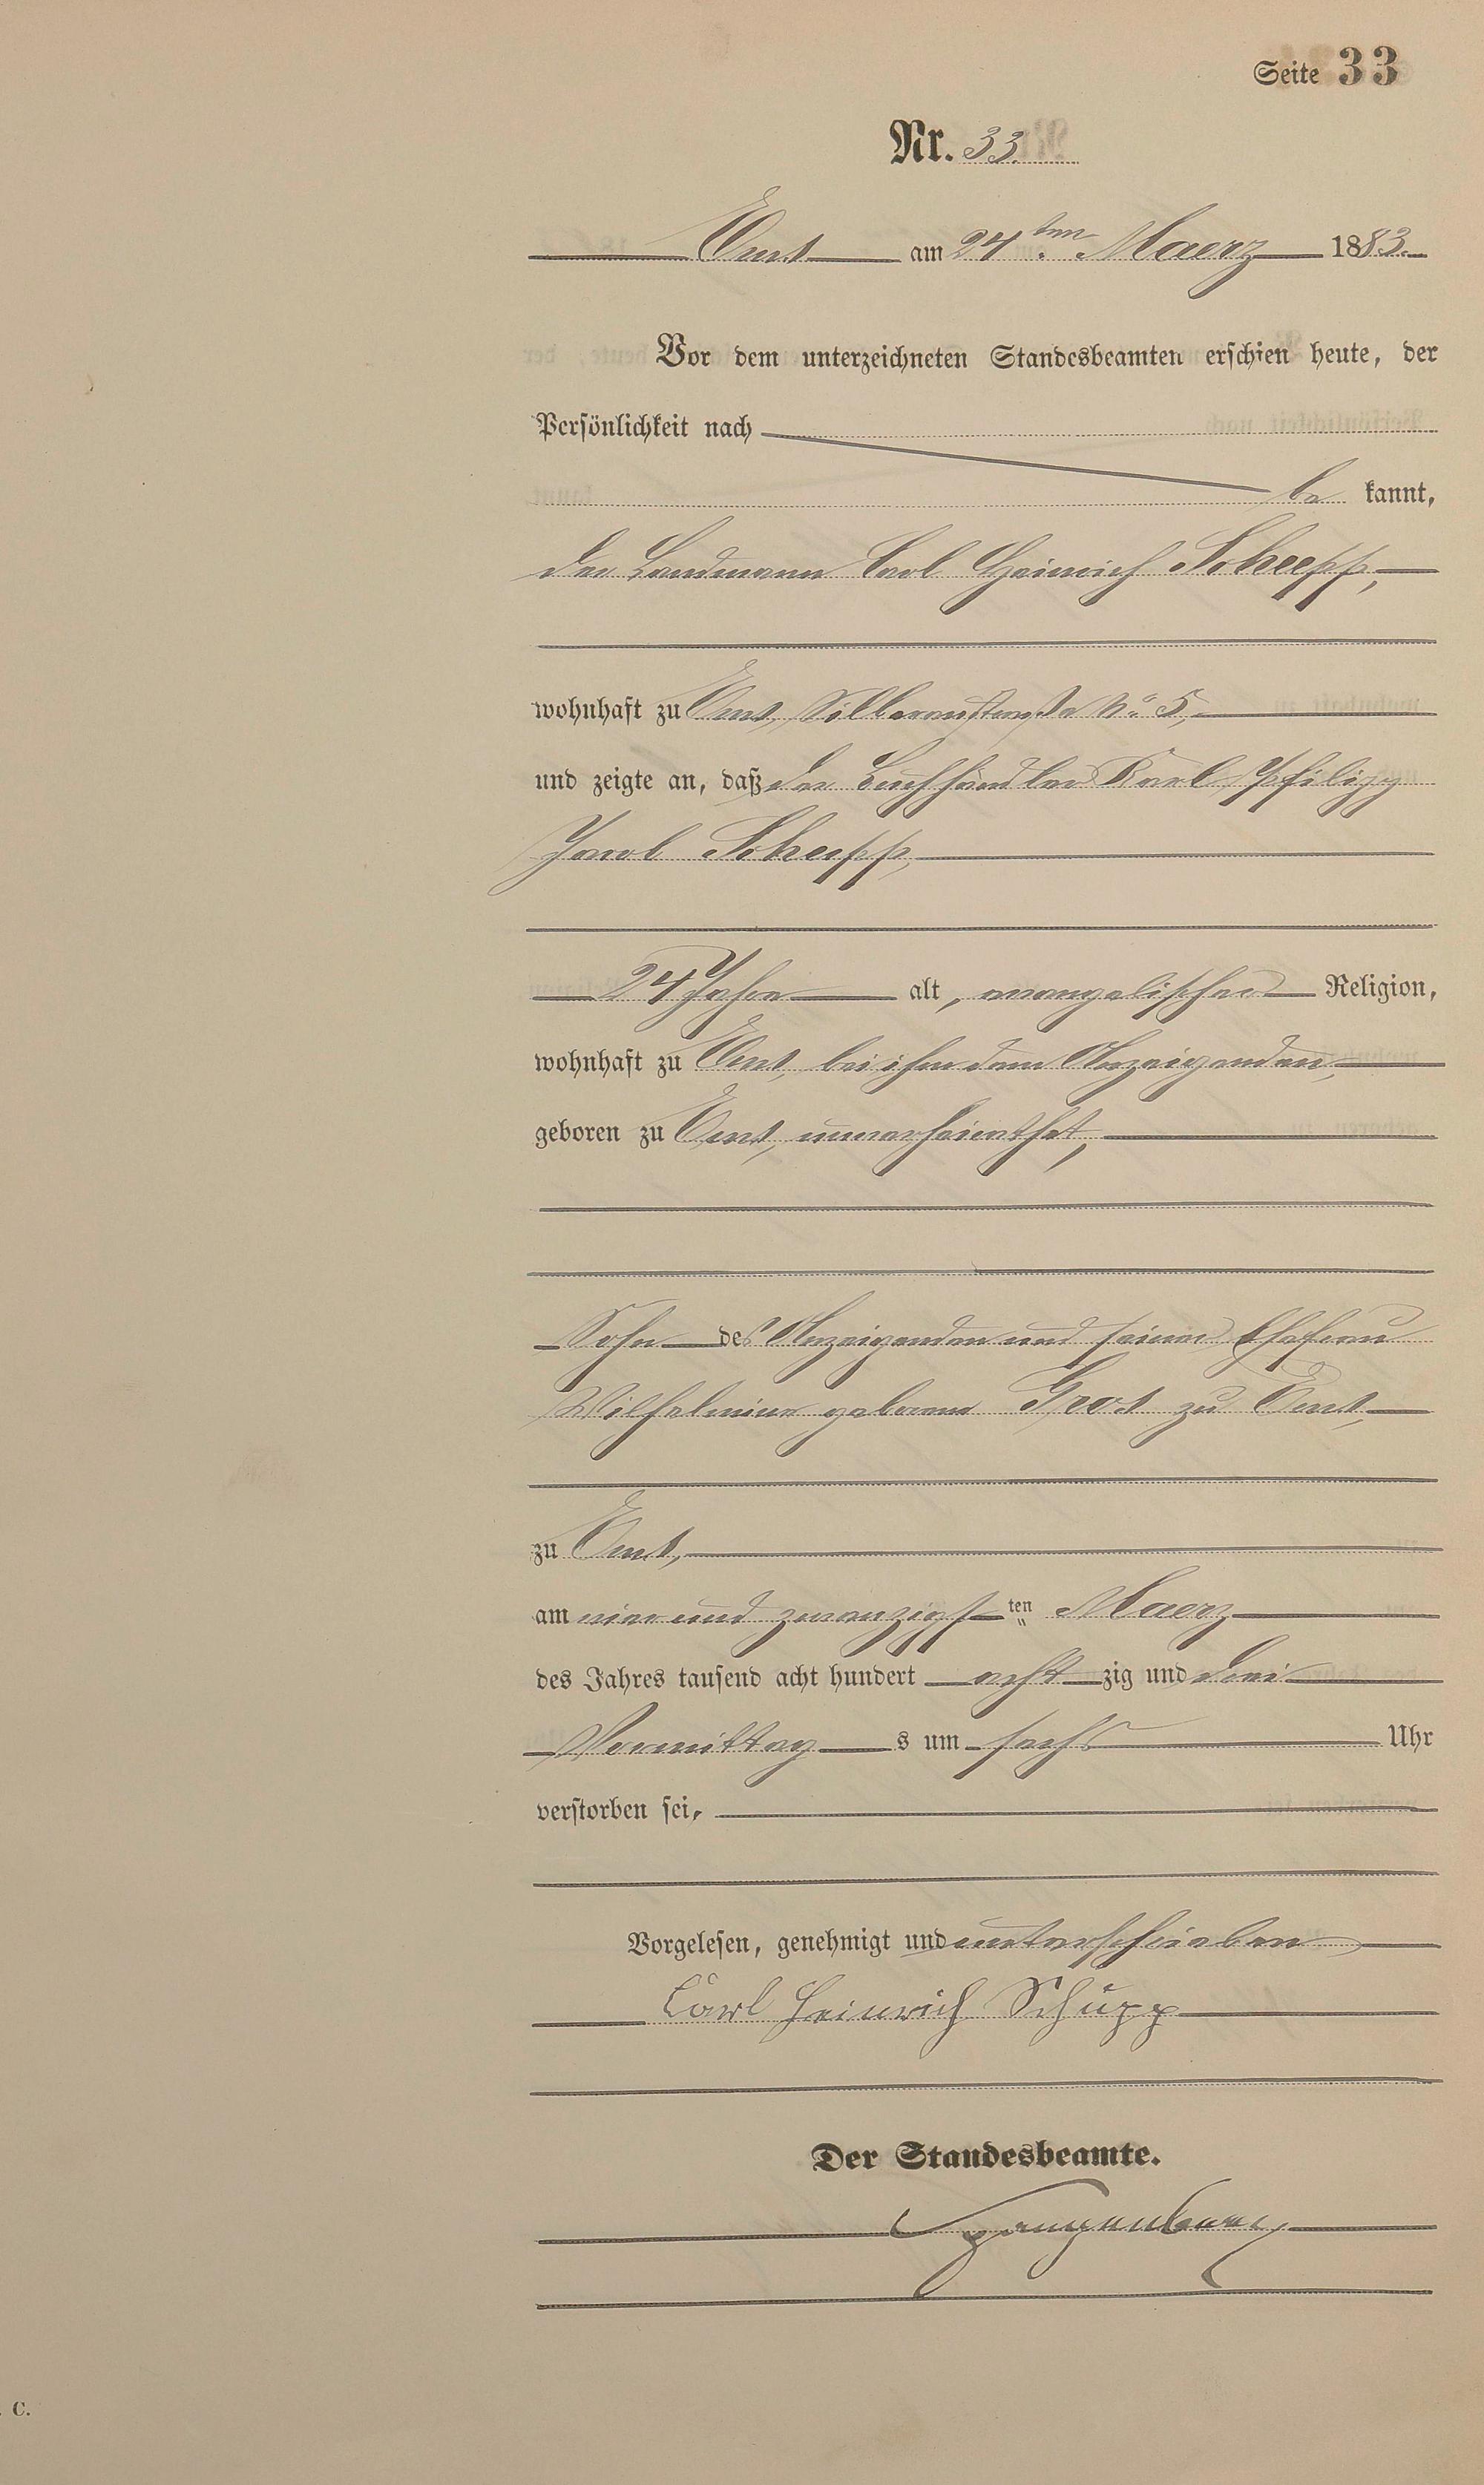 Seite 33
Nr. 33.
Ems am 24ten Maerz 1883.
Vor dem unterzeichneten Standesbeamten erschien heute, der
Persönlichkeit nach
be kannt,
der Landmann Carl Heinrich Schupp,
wohnhaft zu Ems, Silberaustraße No 5,
und zeigte an, daß der Buchhändler Karl Philipp
Jacob Schupp,
24 Jahre alt, evangelischer Religion,
wohnhaft zu Ems, bei ihm dem Anzeigenden,
geboren zu Ems, unverheirathet,
Sohn des Anzeigenden und seiner Ehefrau
Wilhelmine geborene zu Ems,
zu Ems,
am vier und zwanzigsten Maerz
des Jahres tausend acht hundert acht zig und drei
Vormittag s um sechs Uhr
verstorben sei,
Vorgelesen, genehmigt und unterschrieben
Carl Heinrich Schupp
Der Standesbeamte.
Spangenberg
C.